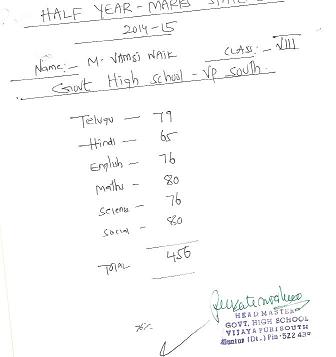 HALF YEAR - MARKS
2014-15
Name:- M. VAMSI NAIK CLASS:- VIII
Govt High school - VP South.
Telugu - 79
Hindi - 65
English - 76
Maths - 80
Science - 76
Social - 80
TOTAL 456
76%
HEADMASTER
GOVT. HIGH SCHOOL
VIJAYAPURI SOUTH
Guntur (Dt.) Pin: 522 439